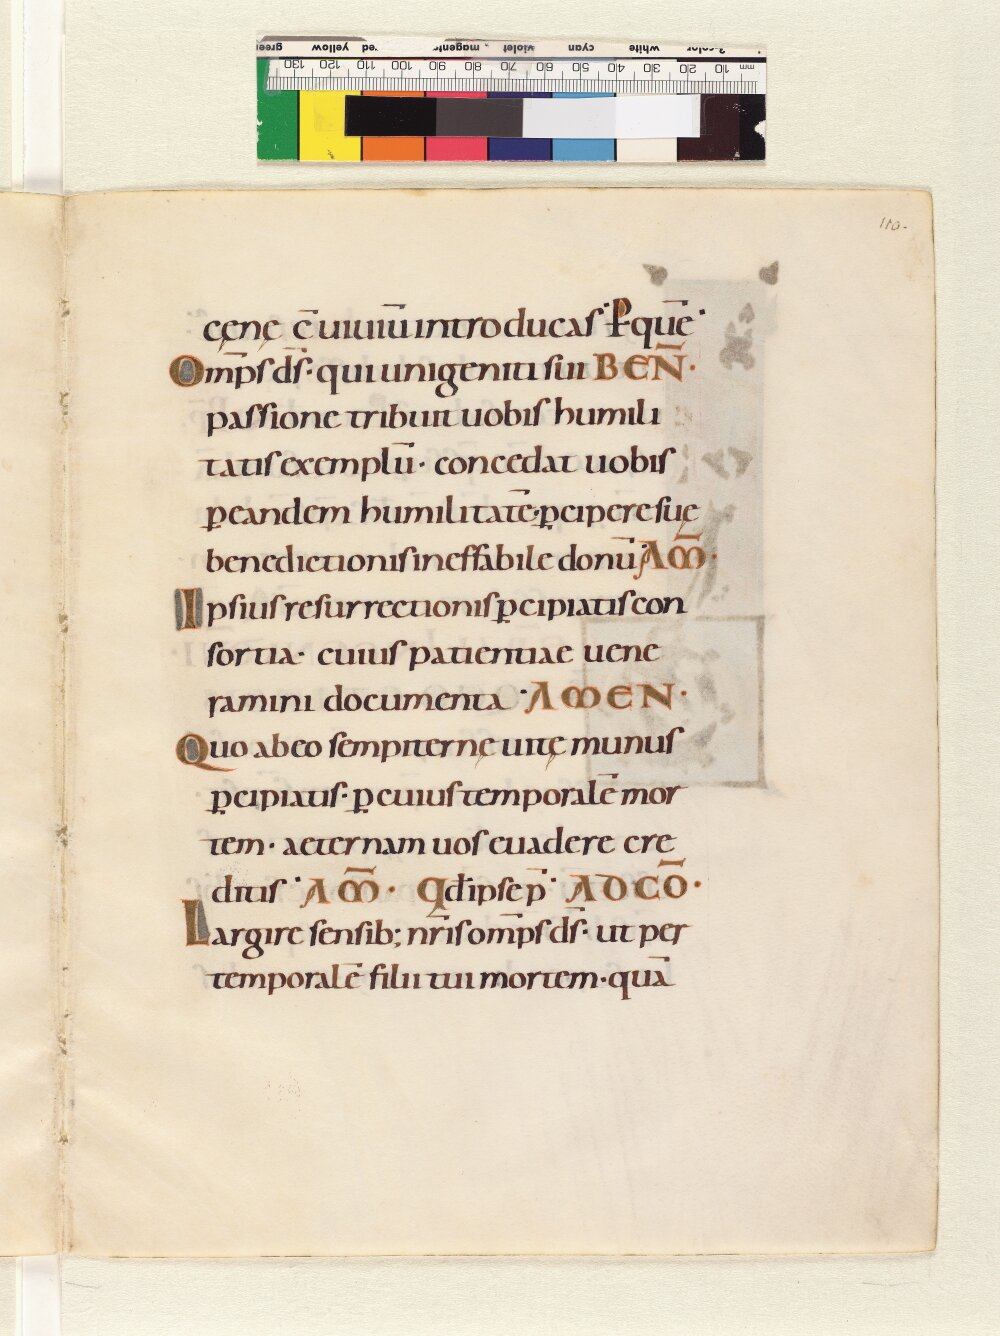 green yellow red magenta violet cyan white 3-color
130 120 110 100 90 80 70 60 50 40 30 20 10 mm
110.
cęnę c̄ uiuiū introducas· P̶ quē·
Om̄ps d̄s· qui unigeniti sui BEN̄·
passione tribuit uobis humili
tatis exemplū· concedat uobis
ꝑ eandem humilitatē· ꝑcipere suę
benedictionis ineffabile donū· AM̄·
Ipsius resurrectionis ꝑcipiatis con
sortia· cuius patientiae uene
ramini documenta· AMEN·
Quo ab eo sempiternę uitę munus
ꝑcipiatis· ꝑ cuius temporalē mor
tem· aeternam uos euadere cre
ditis· AM̄· Qđ ipse p̄· AD CŌ·
Largire sensib; nr̄is om̄ps d̄s· ut per
temporalē filii tui mortem· quā